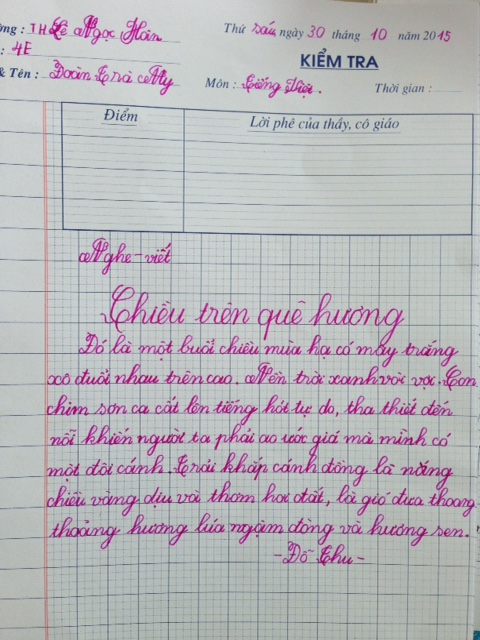 ờng : TH Lê Ngọc Hân
Thứ sáu ngày 30 tháng 10 năm 2015
: 4E
KIỂM TRA
& Tên : Đoàn Trà My
Môn : Tiếng Việt.
Thời gian :
Điểm
Lời phê của thầy, cô giáo
Nghe - viết
Chiều trên quê hương
Đó là một buổi chiều mùa hạ có mây trắng
xô đuổi nhau trên cao. Nền trời xanh vời vợi. Con
chim sơn ca cất lên tiếng hót tự do, tha thiết đến
nỗi khiến người ta phải ao ước giá mà mình có
một đôi cánh. Trải khắp cánh đồng là nắng
chiều vàng dịu và thơm hơi đất, là gió đưa thoang
thoảng hương lúa ngậm đòng và hương sen.
- Đỗ Chu -